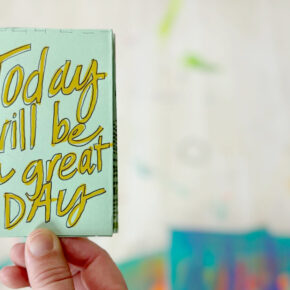 Today
will be
a great
DAY